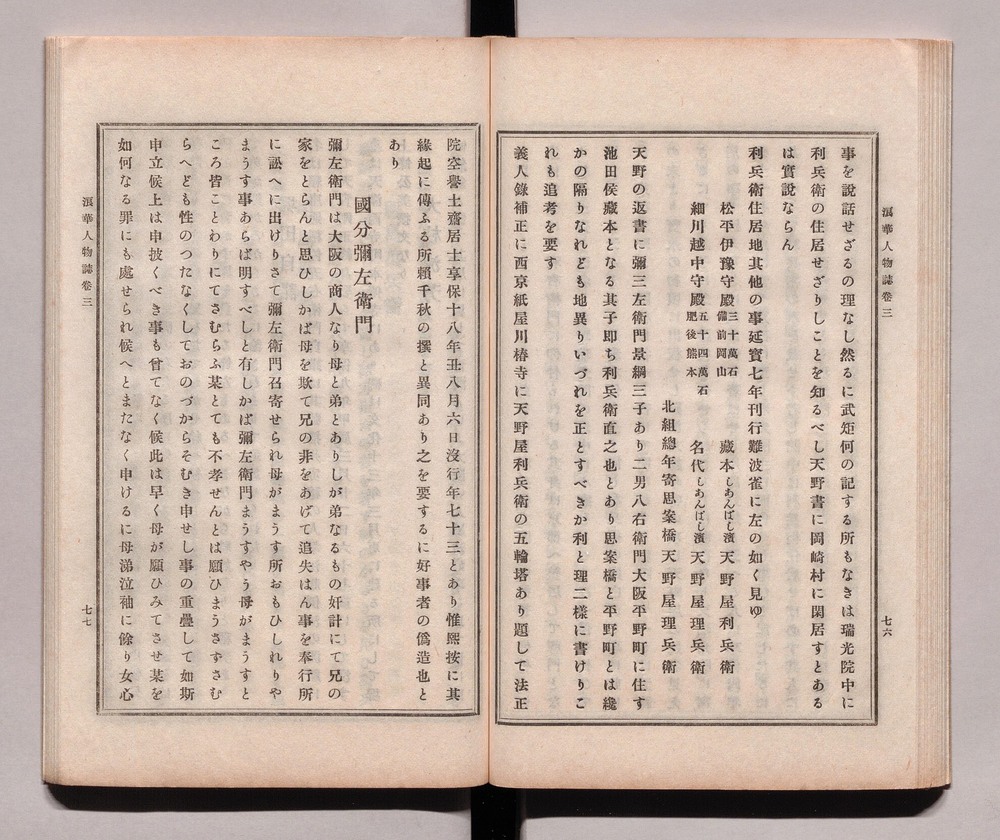 浪華人物誌卷三
七六
事を說話せざるの理なし然るに武矩何の記する所もなきは瑞光院中に
利兵衛の住居せざりしことを知るべし天野書に岡崎村に閑居すとある
は實說ならん
利兵衛住居地其他の事延寶七年刊行難波雀に左の如く見ゆ
松平伊豫守殿三十萬石備前岡山 藏本しあんばし濱 天野屋利兵衛
細川越中守殿五十四萬石肥後熊本 名代しあんばし濱 天野屋理兵衛
北組總年寄思案橋 天野屋理兵衛
天野の返書に彌三左衛門景綱三子あり二男八右衛門大阪平野町に住す
池田侯藏本となる其子即ち利兵衛直之也とあり思案橋と平野町とは纔
かの隔りなれども地異りいづれを正とすべきか利と理二樣に書けりこ
れも追考を要す
義人錄補正に西京紙屋川椿寺に天野屋利兵衛の五輪塔あり題して法正
院空譽土齋居士享保十八年丑八月六日沒行年七十三とあり惟熙按に其
緣起に傳ふる所賴千秋の撰と異同あり之を要するに好事者の僞造也と
あり
國分彌左衛門
彌左衛門は大阪の商人なり母と弟とありしが弟なるもの奸計にて兄の
家をとらんと思ひしかば母を欺て兄の非をあげて追失はん事を奉行所
に訟へに出けりさて彌左衛門召寄せられ母がまうす所おもひしれりや
まうす事あらば明すべしと有しかば彌左衛門まうすやう母がまうすと
ころ皆ことわりにてさむらふ某とても不孝せんとは願ひまうさずさむ
らへども性のつたなくしておのづからそむき申せし事の重疊して如斯
申立候上は申披くべき事も曾てなく候此は早く母が願ひみてさせ某を
如何なる罪にも處せられ候へとまたなく申けるに母涕泣袖に餘り女心
浪華人物誌卷三
七七